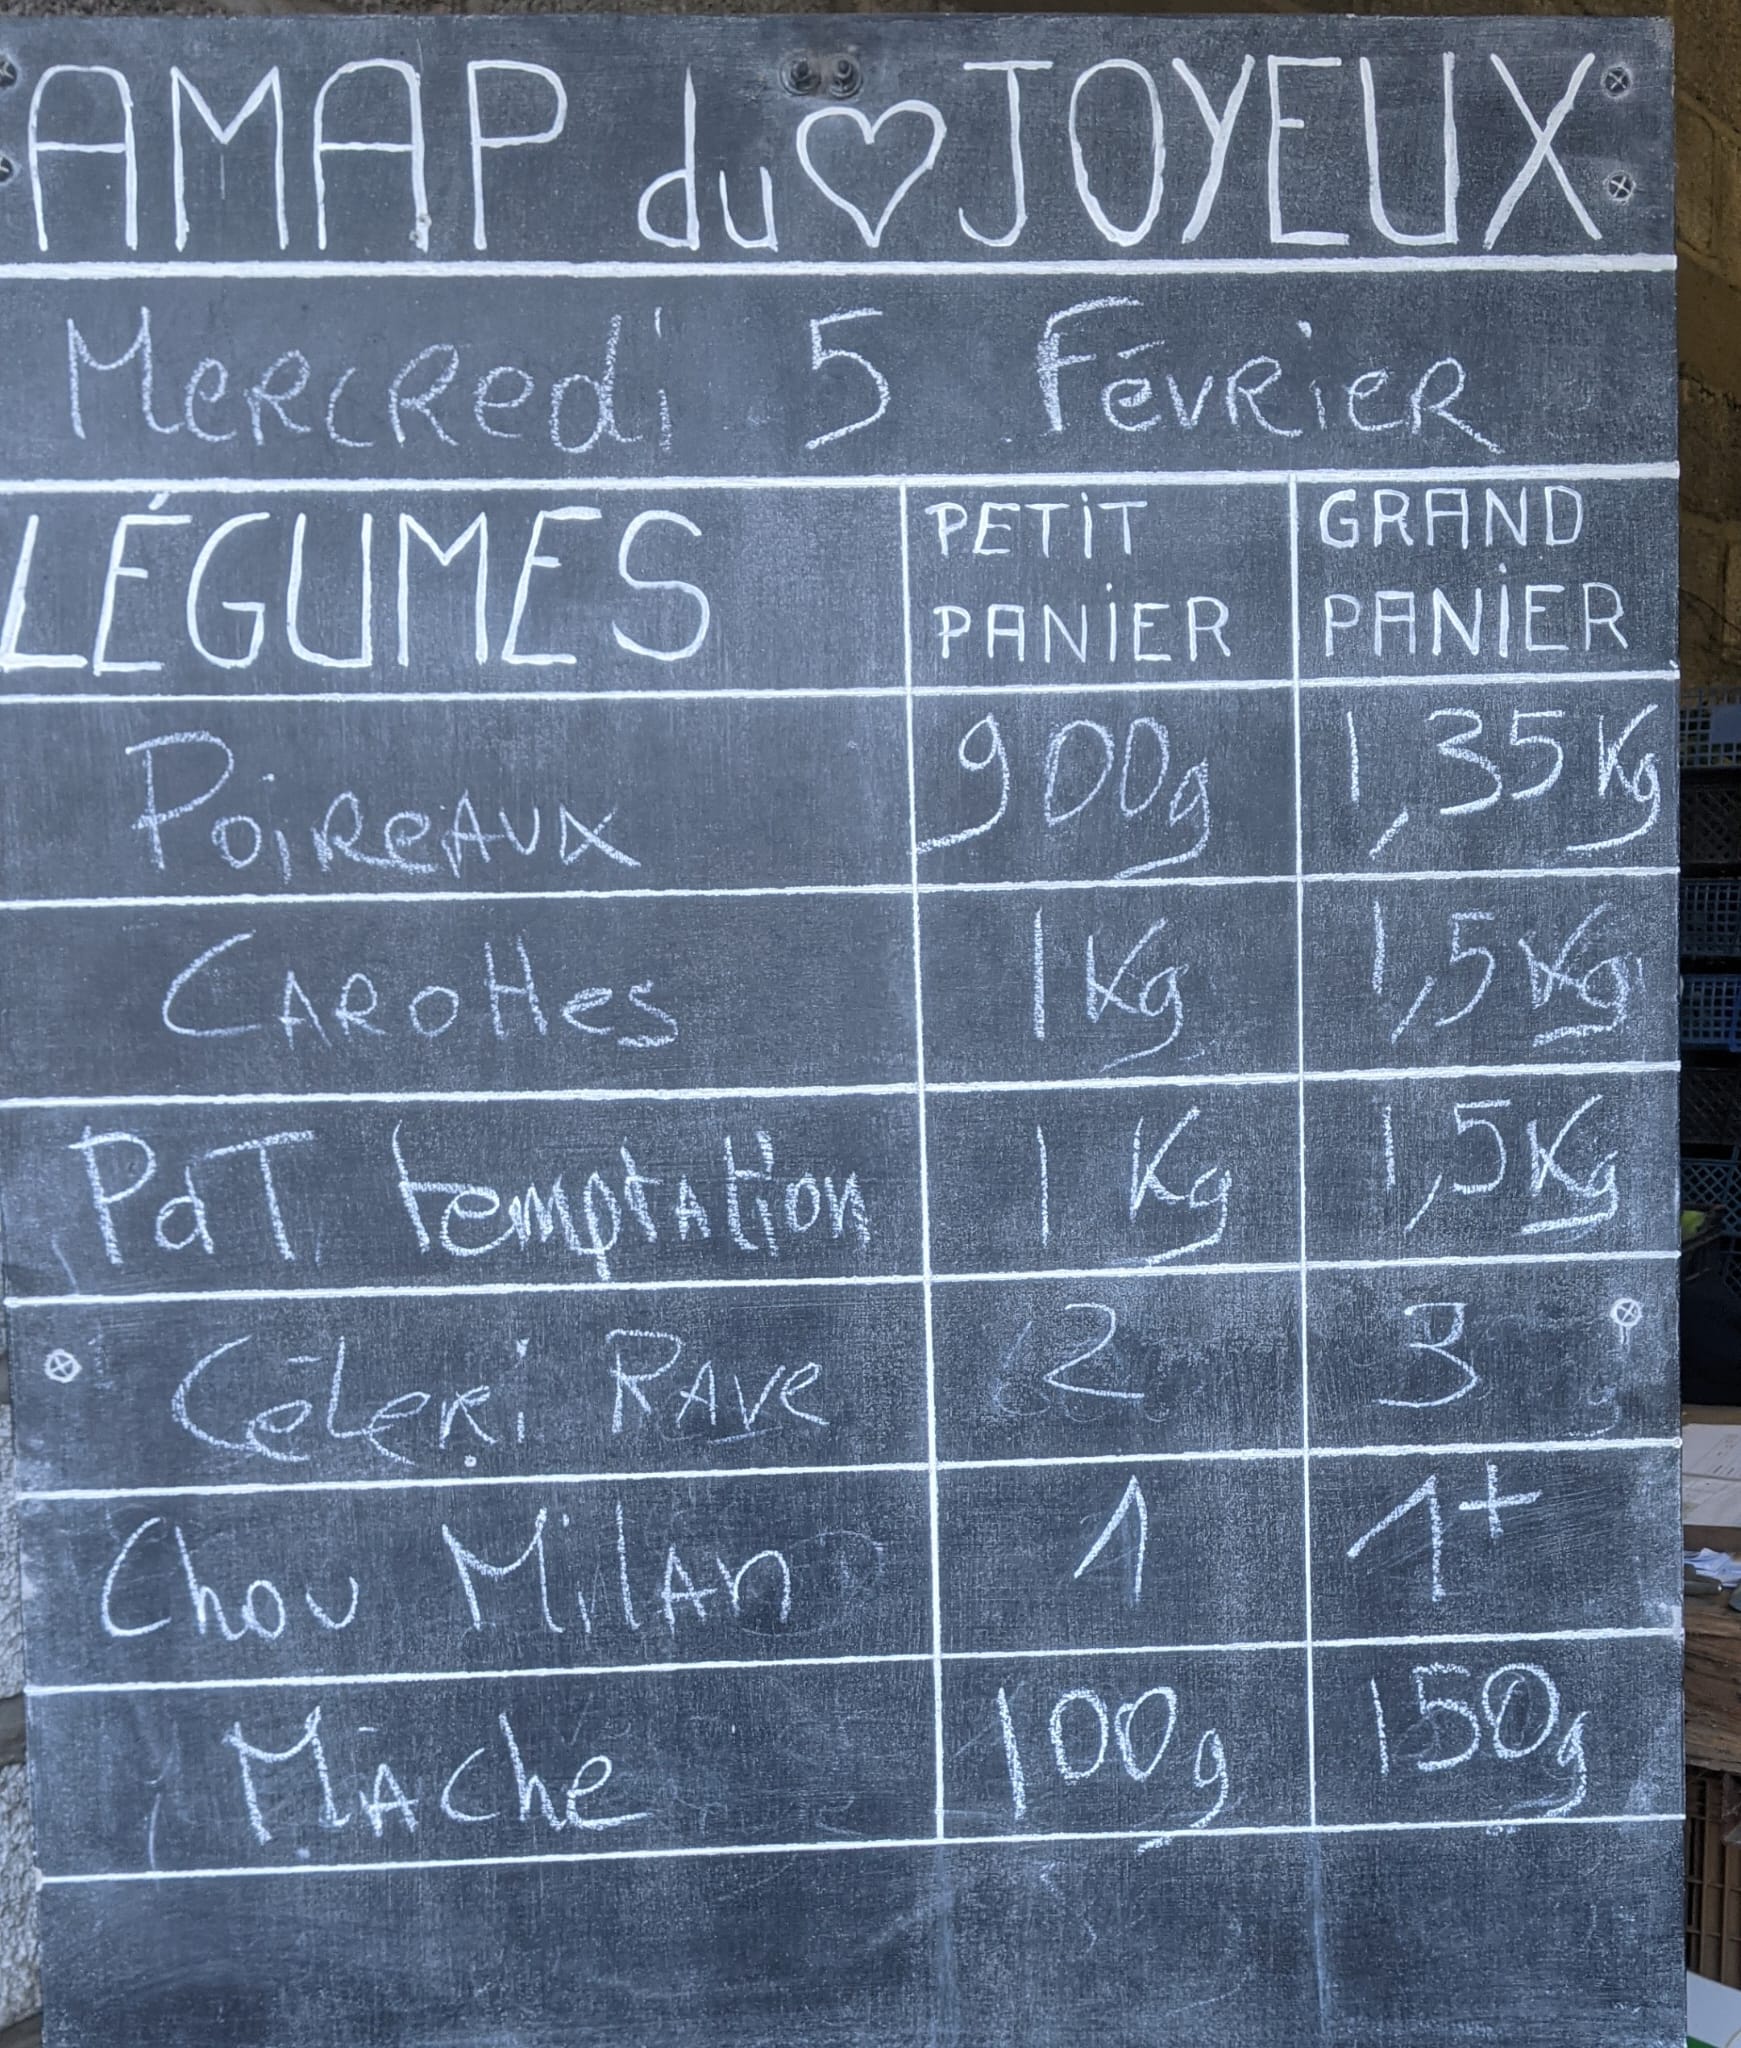 AMAP du ♡ JOYEUX
Mercredi 5 Février
LÉGUMES PETIT PANIER GRAND PANIER
Poireaux 900g 1,35Kg
Carottes 1Kg 1,5Kg
PdT temptation 1 Kg 1,5Kg
Céleri Rave 2 3
Chou Milan 1 1+
Mâche 100g 150g